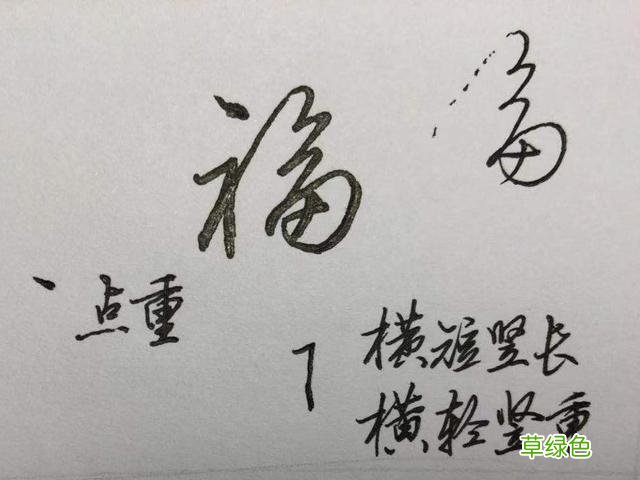 福
点重
横短竖长
横轻竖重
草绿色